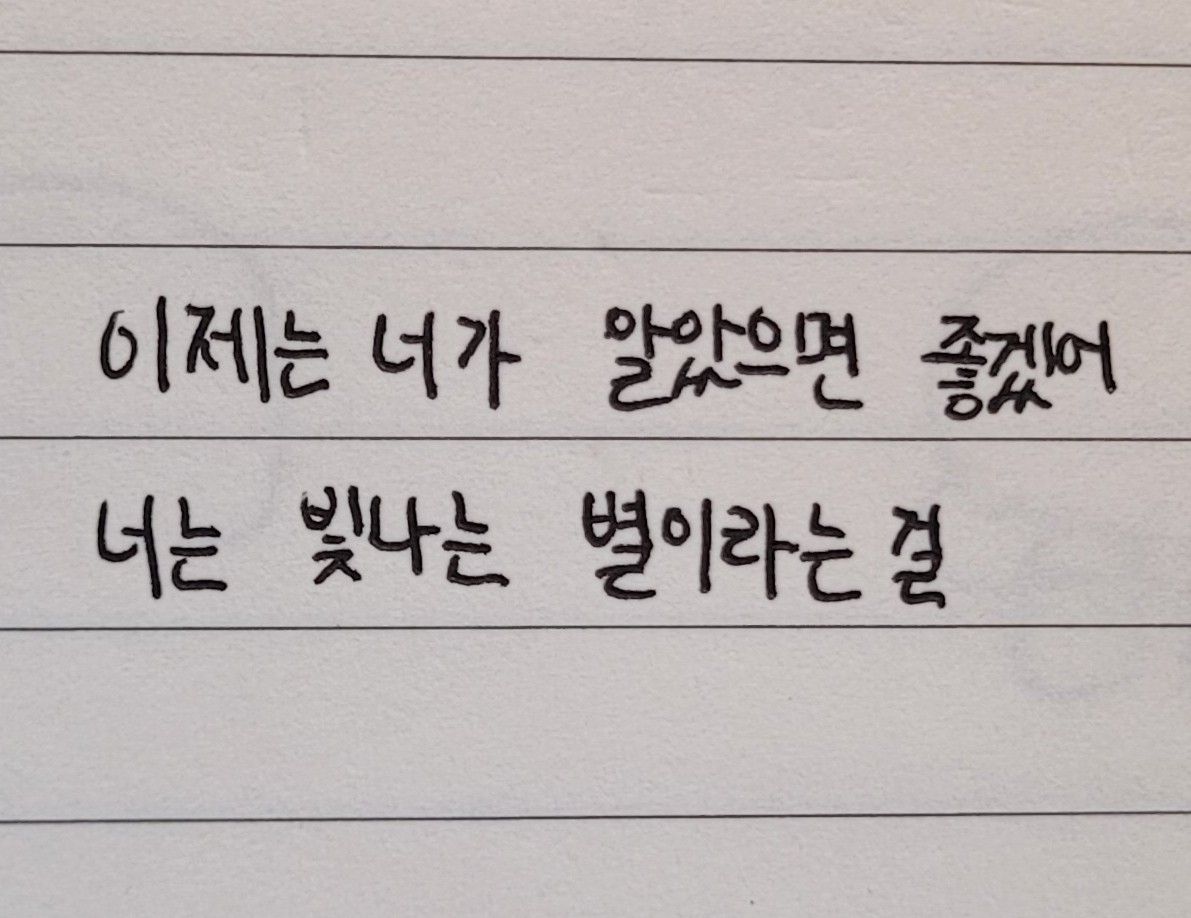 이제는 너가 알았으면 좋겠어
너는 빛나는 별이라는 걸